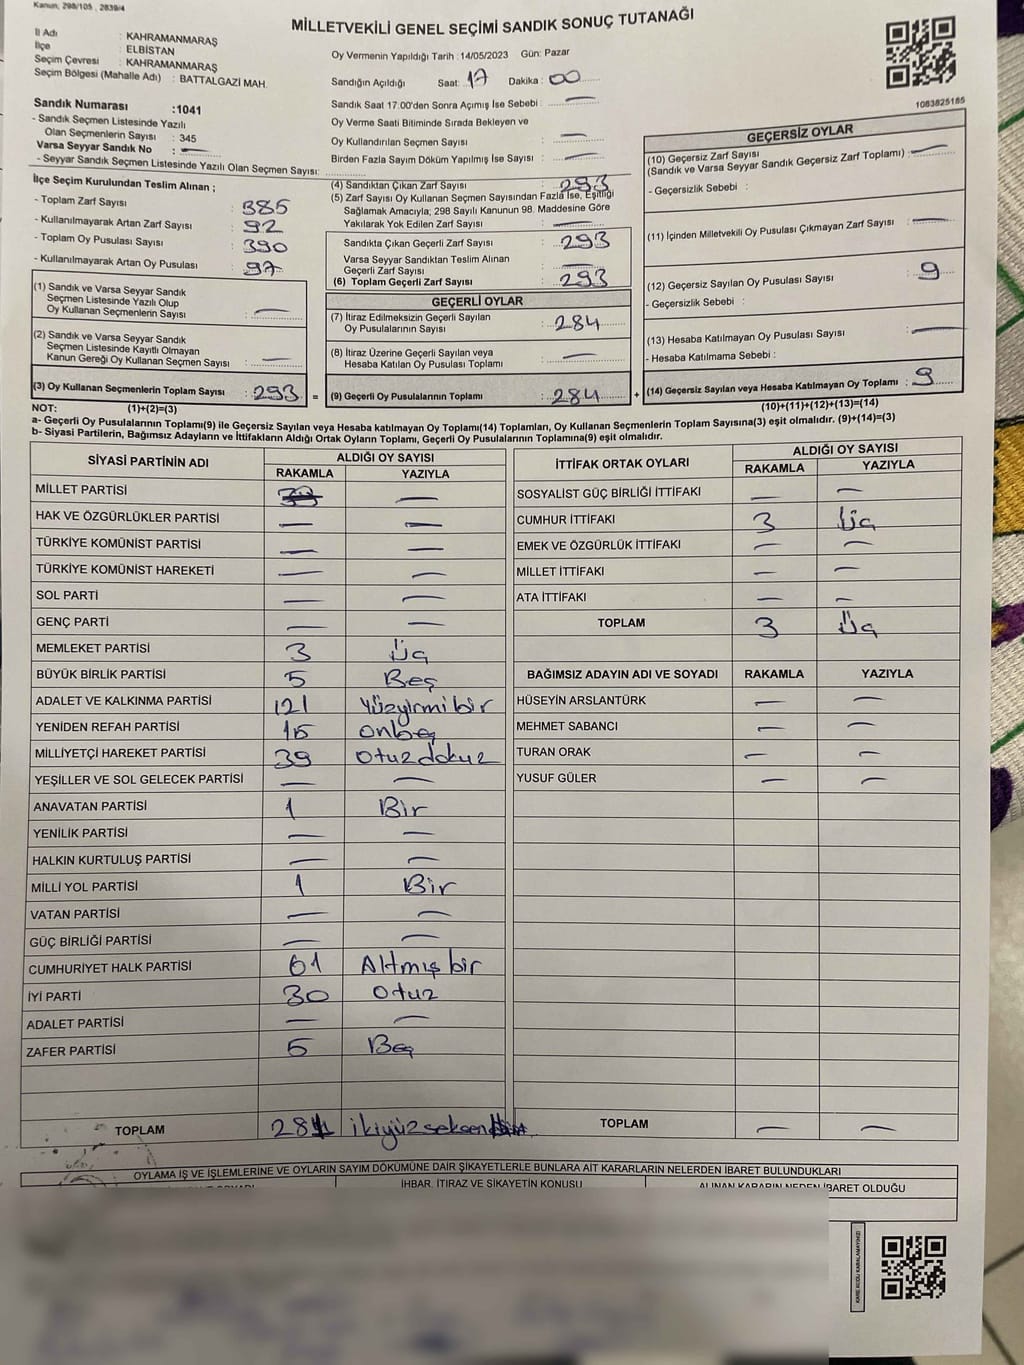 Kanun; 298/105 , 2839/4
MİLLETVEKİLİ GENEL SEÇİMİ SANDIK SONUÇ TUTANAĞI
İl Adı : KAHRAMANMARAŞ
İlçe : ELBİSTAN
Seçim Çevresi : KAHRAMANMARAŞ
Seçim Bölgesi (Mahalle Adı) : BATTALGAZİ MAH.
Oy Vermenin Yapıldığı Tarih :14/05/2023 Gün: Pazar
Sandığın Açıldığı Saat: 17 Dakika : 00
Sandık Saat 17:00'den Sonra Açımış İse Sebebi : —
Oy Verme Saati Bitiminde Sırada Bekleyen ve
Oy Kullandırılan Seçmen Sayısı : —
Birden Fazla Sayım Döküm Yapılmış İse Sayısı : —
1083825185
Sandık Numarası :1041
- Sandık Seçmen Listesinde Yazılı
Olan Seçmenlerin Sayısı : 345
Varsa Seyyar Sandık No : —
- Seyyar Sandık Seçmen Listesinde Yazılı Olan Seçmen Sayısı:
İlçe Seçim Kurulundan Teslim Alınan ;
- Toplam Zarf Sayısı : 385
- Kullanılmayarak Artan Zarf Sayısı : 92
- Toplam Oy Pusulası Sayısı : 390
- Kullanılmayarak Artan Oy Pusulası : 97
(1) Sandık ve Varsa Seyyar Sandık
Seçmen Listesinde Yazılı Olup
Oy Kullanan Seçmenlerin Sayısı : —
(2) Sandık ve Varsa Seyyar Sandık
Seçmen Listesinde Kayıtlı Olmayan
Kanun Gereği Oy Kullanan Seçmen Sayısı : —
(3) Oy Kullanan Seçmenlerin Toplam Sayısı : 293 =
(4) Sandıktan Çıkan Zarf Sayısı : 293
(5) Zarf Sayısı Oy Kullanan Seçmen Sayısından Fazla İse, Eşitliği
Sağlamak Amacıyla; 298 Sayılı Kanunun 98. Maddesine Göre
Yakılarak Yok Edilen Zarf Sayısı : —
Sandıkta Çıkan Geçerli Zarf Sayısı : 293
Varsa Seyyar Sandıktan Teslim Alınan
Geçerli Zarf Sayısı : —
(6) Toplam Geçerli Zarf Sayısı : 293
GEÇERLİ OYLAR
(7) İtiraz Edilmeksizin Geçerli Sayılan
Oy Pusulalarının Sayısı : 284
(8) İtiraz Üzerine Geçerli Sayılan veya
Hesaba Katılan Oy Pusulası Toplamı : —
(9) Geçerli Oy Pusulalarının Toplamı : 284 +
GEÇERSİZ OYLAR
(10) Geçersiz Zarf Sayısı
(Sandık ve Varsa Seyyar Sandık Geçersiz Zarf Toplamı) : —
- Geçersizlik Sebebi :
(11) İçinden Milletvekili Oy Pusulası Çıkmayan Zarf Sayısı : —
(12) Geçersiz Sayılan Oy Pusulası Sayısı : 9
- Geçersizlik Sebebi :
(13) Hesaba Katılmayan Oy Pusulası Sayısı : —
- Hesaba Katılmama Sebebi :
(14) Geçersiz Sayılan veya Hesaba Katılmayan Oy Toplamı : 9
NOT: (1)+(2)=(3)
(10)+(11)+(12)+(13)=(14)
a- Geçerli Oy Pusulalarının Toplamı(9) ile Geçersiz Sayılan veya Hesaba Katılmayan oy Toplamı(14) Toplamları, Oy Kullanan Seçmenlerin Toplam Sayısına(3) eşit olmalıdır. (9)+(14)=(3)
b- Siyasi Partilerin, Bağımsız Adayların ve İttifakların Aldığı Ortak Oyların Toplamı, Geçerli Oy Pusulalarının Toplamına(9) eşit olmalıdır.
SİYASİ PARTİNİN ADI ALDIĞI OY SAYISI
RAKAMLA YAZIYLA
MİLLET PARTİSİ —
HAK VE ÖZGÜRLÜKLER PARTİSİ — —
TÜRKİYE KOMÜNİST PARTİSİ — —
TÜRKİYE KOMÜNİST HAREKETİ — —
SOL PARTİ — —
GENÇ PARTİ — —
MEMLEKET PARTİSİ 3 Üç
BÜYÜK BİRLİK PARTİSİ 5 Beş
ADALET VE KALKINMA PARTİSİ 121 Yüzyirmibir
YENİDEN REFAH PARTİSİ 15 onbeş
MİLLİYETÇİ HAREKET PARTİSİ 39 Otuzdokuz
YEŞİLLER VE SOL GELECEK PARTİSİ — —
ANAVATAN PARTİSİ 1 Bir
YENİLİK PARTİSİ — —
HALKIN KURTULUŞ PARTİSİ — —
MİLLİ YOL PARTİSİ 1 Bir
VATAN PARTİSİ — —
GÜÇ BİRLİĞİ PARTİSİ — —
CUMHURİYET HALK PARTİSİ 61 Altmış bir
İYİ PARTİ 30 Otuz
ADALET PARTİSİ — —
ZAFER PARTİSİ 5 Beş
TOPLAM 281 ikiyüzseksen
İTTİFAK ORTAK OYLARI ALDIĞI OY SAYISI
RAKAMLA YAZIYLA
SOSYALİST GÜÇ BİRLİĞİ İTTİFAKI — —
CUMHUR İTTİFAKI 3 Üç
EMEK VE ÖZGÜRLÜK İTTİFAKI — —
MİLLET İTTİFAKI — —
ATA İTTİFAKI — —
TOPLAM 3 Üç
BAĞIMSIZ ADAYIN ADI VE SOYADI RAKAMLA YAZIYLA
HÜSEYİN ARSLANTÜRK — —
MEHMET SABANCI — —
TURAN ORAK — —
YUSUF GÜLER — —
TOPLAM — —
OYLAMA İŞ VE İŞLEMLERİNE VE OYLARIN SAYIM DÖKÜMÜNE DAİR ŞİKAYETLERLE BUNLARA AİT KARARLARIN NELERDEN İBARET BULUNDUKLARI
İHBAR, İTİRAZ VE ŞİKAYETİN KONUSU
ALINAN KARARIN NEDEN İBARET OLDUĞU
KARE KODU KARALAMAYINIZ!